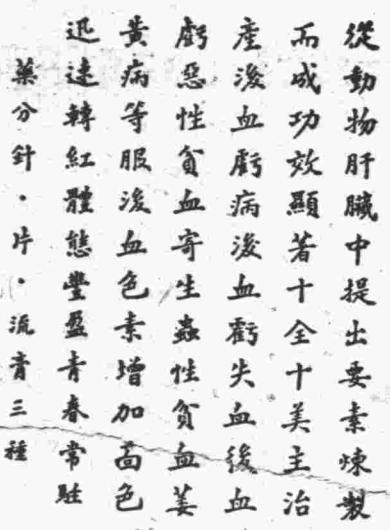 從動物肝臟中提出要素煉製
而成功效顯著十全十美主治
產後血虧病後血虧失血後血
虧惡性貧血寄生蟲性貧血萎
黃病等服後血色素增加面色
迅速轉紅體態豐盈青春常駐
藥分針·片·流膏三種